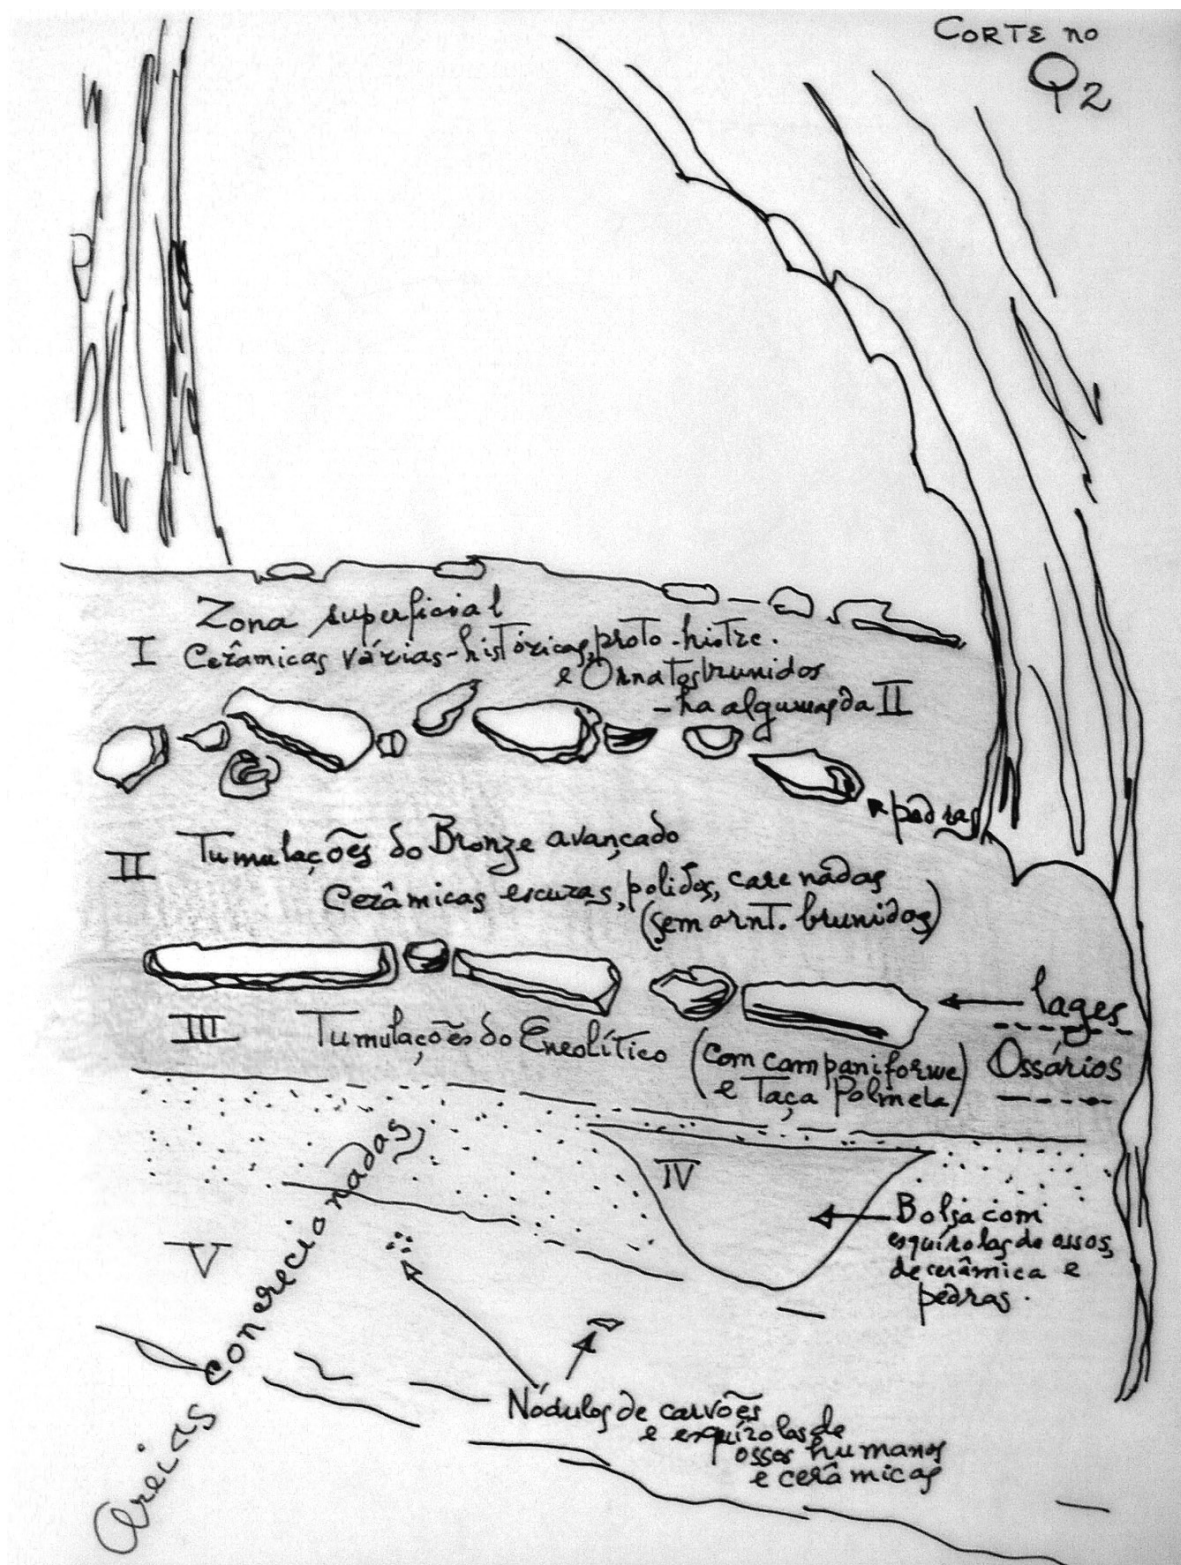 CORTE no
Q2
Zona superficial
I Cerâmicas várias-históricas, proto-histrc.
e Ornatos brunidos
- ha algumas da II
pedras
II Tumulações do Bronze avançado
Cerâmicas escuras, polidas, carenadas
(sem ornt. brunidos)
lages
III Tumulações do Eneolítico (com campaniforme
e Taça Palmela)
Ossários
IV
Bolsa com
esquírolas de ossos,
de cerâmica e
pedras.
V
Areias concrecionadas
Nódulos de carvões
e esquírolas de
ossos humanos
e cerâmicas